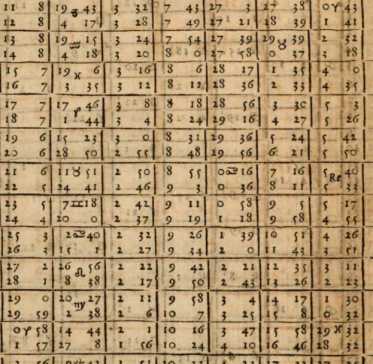 11 8 | 19 ♑ 43 | 3 32 | 7 43 | 27 3 | 27 38 | 0 ♈ 43
12 8 | 4 17 | 3 28 | 7 49 | 27 21 | 28 39 | 1 41
13 8 | 19 ♒ 15 | 3 24 | 7 54 | 27 39 | 29 39 | 2 32
14 8 | 4 18 | 3 20 | 8 0 | 27 58 | 0 ♉ 37 | 3 18
15 7 | 19 ♓ 6 | 3 16 | 8 6 | 28 17 | 1 35 | 4 0
16 7 | 3 35 | 3 12 | 8 12 | 28 36 | 2 33 | 4 35
17 7 | 17 46 | 3 8 | 8 18 | 28 56 | 3 30 | 5 3
18 7 | 1 ♈ 44 | 3 4 | 8 24 | 29 16 | 4 27 | 5 26
19 6 | 15 23 | 3 0 | 8 31 | 29 36 | 5 24 | 5 42
20 6 | 28 50 | 2 55 | 8 48 | 29 56 | 6 21 | 5 50
21 6 | 11 ♉ 51 | 2 50 | 8 55 | 0 ♎ 16 | 7 16 | 5 Re 40
22 5 | 24 41 | 2 46 | 9 3 | 0 36 | 8 11 | 5 33
23 5 | 7 ♊ 18 | 2 42 | 9 11 | 0 58 | 9 5 | 5 17
24 4 | 20 0 | 2 37 | 9 19 | 1 18 | 9 58 | 4 55
25 3 | 2 ♋ 40 | 2 32 | 9 26 | 1 39 | 10 51 | 4 26
26 | 15 1 | 2 27 | 9 34 | 2 0 | 11 43 | 3 51
27 2 | 26 56 | 2 22 | 9 42 | 2 21 | 12 35 | 3 11
28 1 | 8 ♌ 38 | 2 17 | 9 50 | 2 43 | 13 26 | 2 23
29 0 | 20 27 | 2 11 | 9 58 | 3 4 | 14 17 | 1 30
29 59 | 2 ♍ 38 | 2 6 | 10 7 | 3 25 | 15 8 | 0 32
0 ♈ 58 | 14 44 | 2 1 | 10 16 | 3 47 | 15 58 | 29 ♓ 32
1 57 | 27 8 | 1 56 | 10 24 | 4 10 | 16 46 | 28 32